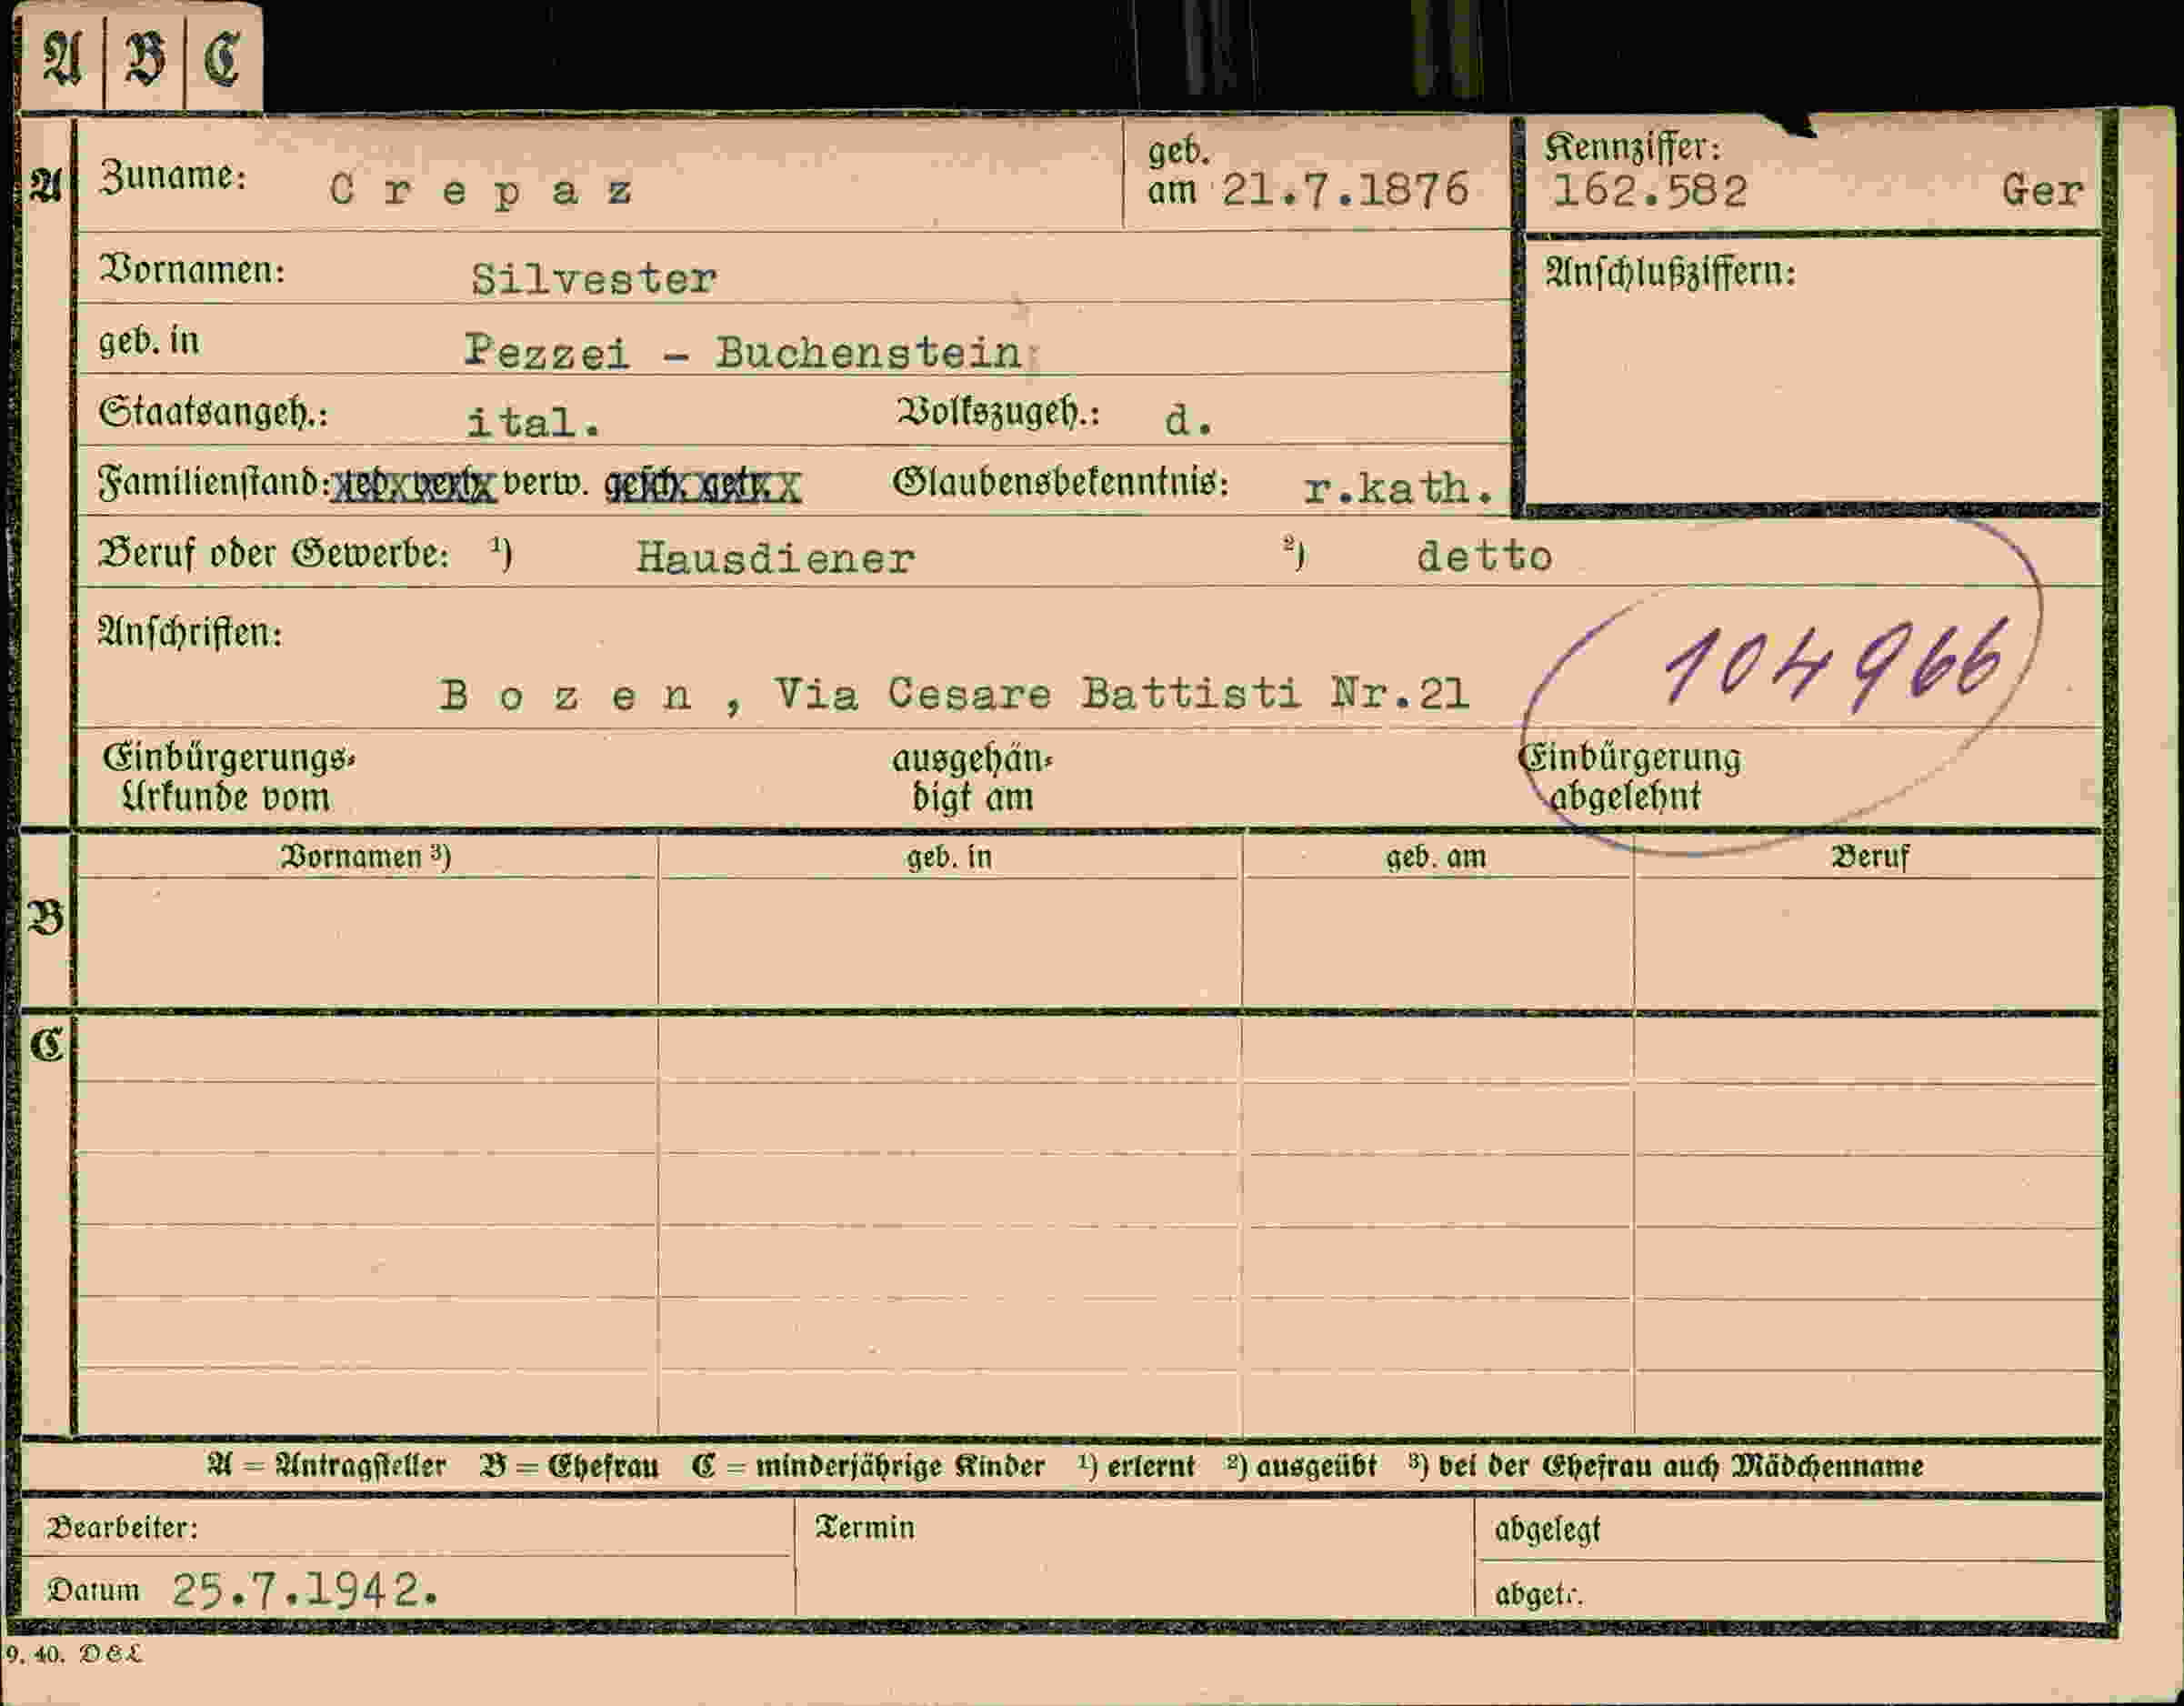 A B C
A Zuname: Crepaz geb. am 21.7.1876 Kennziffer: 162.582 Ger
Vornamen: Silvester Anschlußziffern:
geb. in Pezzei - Buchenstein
Staatsangeh.: ital. Volkszugeh.: d.
Familienstand: verw. gesch. getr. Glaubensbekenntnis: r.kath.
Beruf oder Gewerbe: ¹) Hausdiener ²) detto
Anschriften:
104966
Bozen, Via Cesare Battisti Nr.21
Einbürgerungs- ausgehän- Einbürgerung
Urkunde vom digt am abgelehnt
Vornamen ³) geb. in geb. am Beruf
B
C
A = Antragsteller B = Ehefrau C = minderjährige Kinder ¹) erlernt ²) ausgeübt ³) bei der Ehefrau auch Mädchenname
Bearbeiter: Termin abgelegt
Datum 25.7.1942. abgetr.
9. 40. D&L